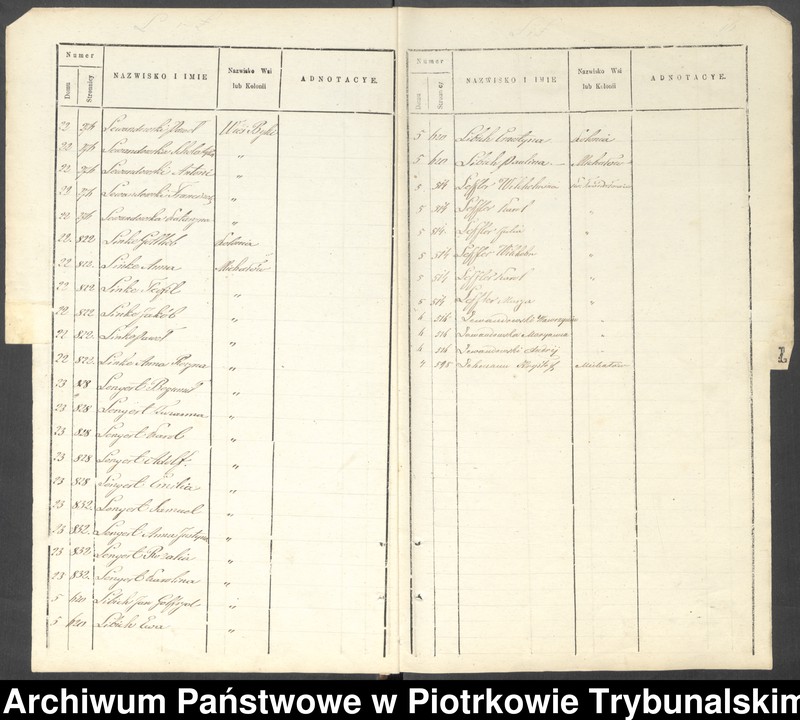 Numer
Domu Stronnicy NAZWISKO I IMIE Nazwisko Wsi lub Kolonii ADNOTACYE.
22 716 Lewandowski Paweł Wieś
22 716 Lewandowska
22 716 Lewandowski Antoni "
22 716 Lewandowski Franciszek "
22 716 Lewandowska Katarzyna "
22 822 Linke Gottlieb Kolonia
22 822 Linke Anna Michałów
22 822 Linke "
22 822 Linke Jakób "
22 822 Linke Paweł "
22 822 Linke Anna Rozyna "
23 828 Lengert Bogumił "
23 828 Lengert Zuzanna "
23 828 Lengert Karol "
23 828 Lengert Adolf "
23 828 Lengert Emilia "
23 832 Lengert Samuel "
23 832 Lengert Anna Justyna "
23 832 Lengert Rozalia "
23 832 Lengert Karolina "
5 620 Libich Jan "
5 620 Libich Ewa "
Numer
Domu Stronnicy NAZWISKO I IMIE Nazwisko Wsi lub Kolonii ADNOTACYE.
5 620 Libich Krystyna Kolonia
5 620 Libich Paulina Michałów
5 514 Leffler Wilhelmina
5 514 Leffler Karol "
5 514 Leffler Julia "
5 514 Leffler Wilhelm "
5 514 Leffler Karol "
5 514 Leffler "
4 516 Lewandowski Wawrzyniec
4 516 Lewandowska Maryanna
4 516 Lewandowski Andrzej
7 595 Lehmann Krysztof Michałów
L
Archiwum Państwowe w Piotrkowie Trybunalskim